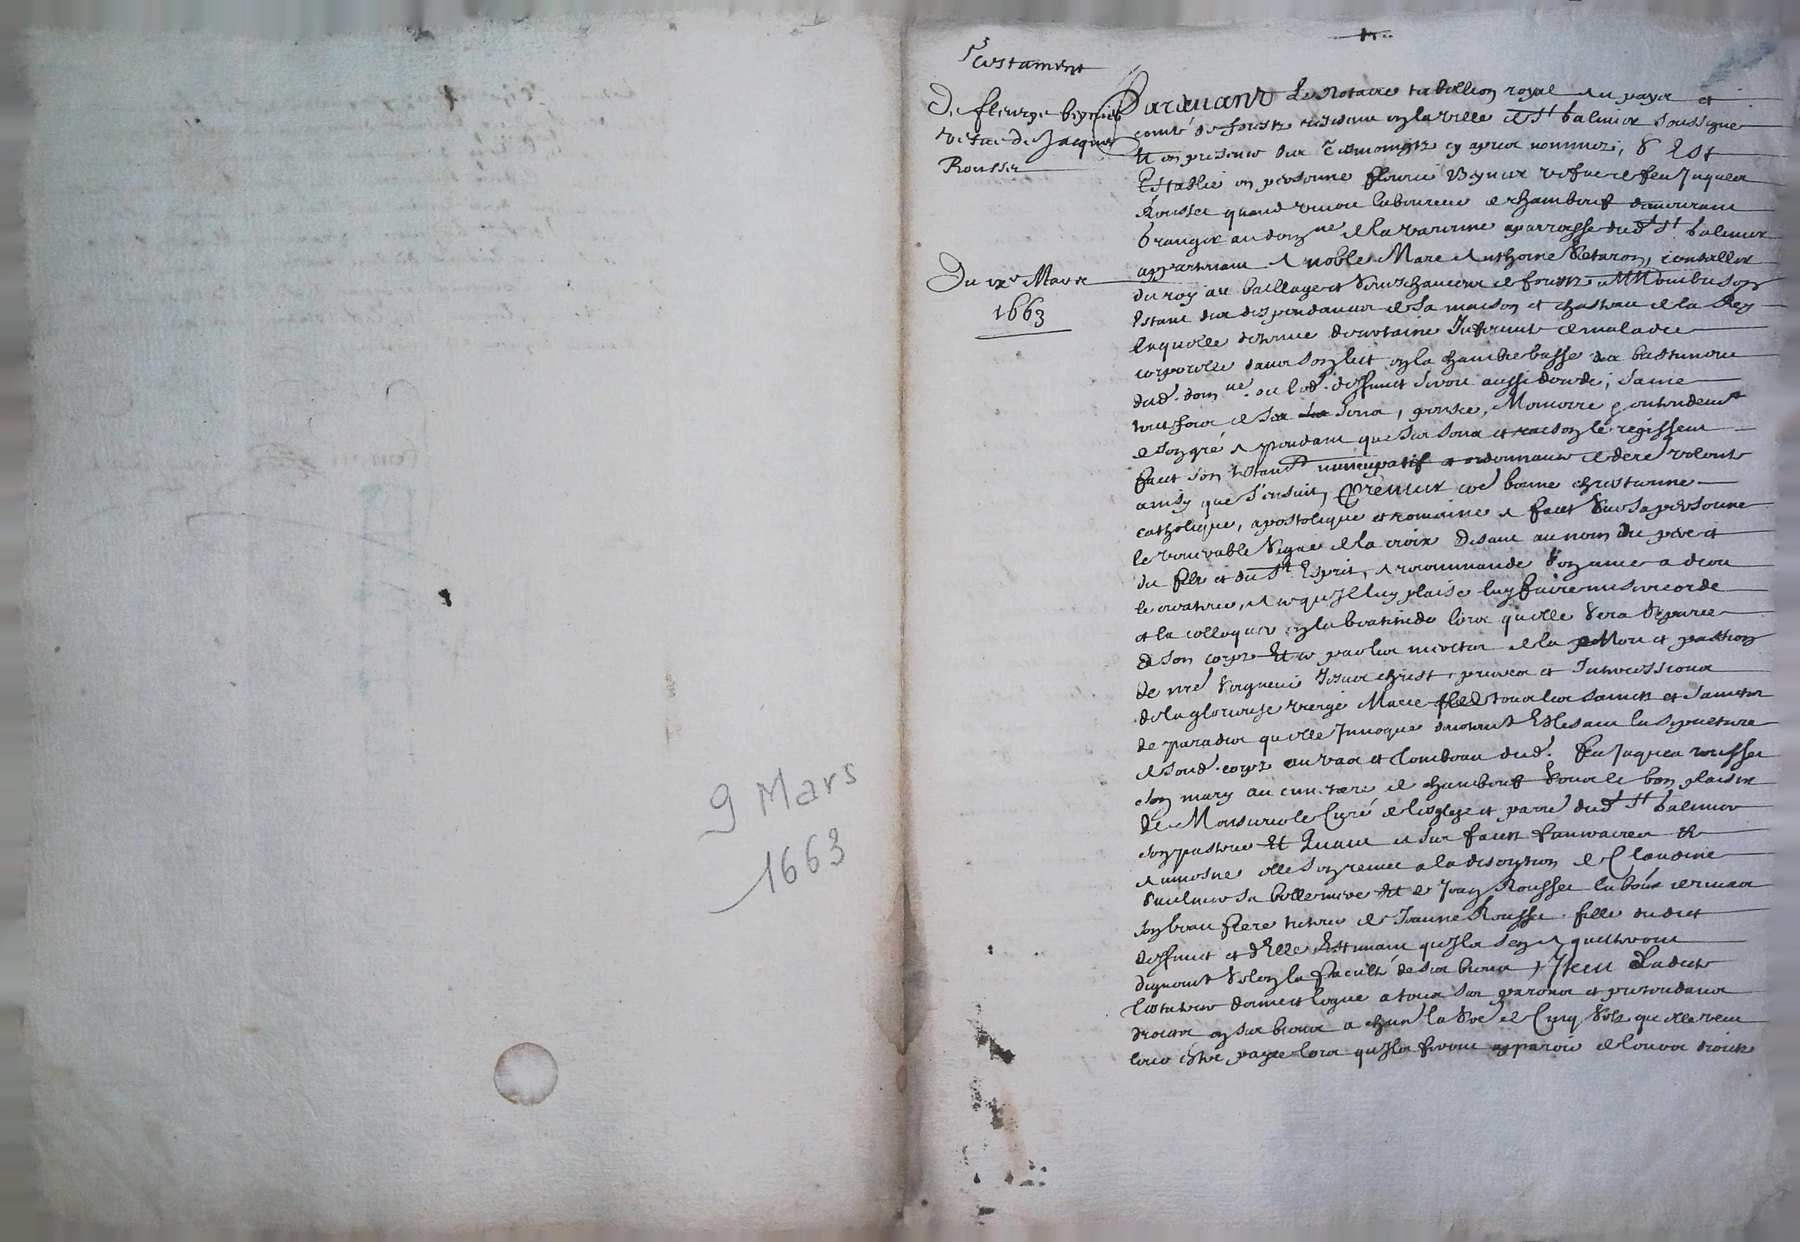 9 Mars
1663
Testament
De fleurye beynier
vefue de Jacques
Rousset
Du ixe Mars
1663
Pardeuant Le Notaire tabellion royal au pays et
comté de forestz residant en la ville de St balmier soussigné
Et en presence des Tesmoingtz cy apres nommez, S'est
Establie en personne fleurie Beynier vefue de feu Jaques
Rousset quand viuoit laboureur de chambeuf demourant
grangier au dom.ne de la varenne aparroisse dud. St balmier
appartenant A noble Marc Anthoine Setaron, conseiller
du roy au bailliage et seneschaucee de forestz
Estant des despendances de sa maison et chasteau de la Rey
laquelle detenue de certaine Infirmité de maladie
corporelle dans son lict en la chambre basse du bastiment
dud. dom.ne ou led. deffunct aussi decedé, saine
toutesfois de ses sens, pensee, Memoire entendemt
de son gré A pendant que ses sens et raison le regissent
faict son testamt nuncupatif et ordonnance de dere volonté
ainsy que s'ensuit, Premier co.e bonne chrestienne
catholique, apostolique et romaine A faict sur sa personne
le venerable signe de la croix Disant au nom du pere et
du filz et du St Esprit, A recommandé son ame a dieu
le createur, A ce qu'Il luy plaise luy faire misericorde
et la colloquer en la beatitude lors qu'elle sera separee
de son corps Et ce par les merites de la Mort et passion
de nre seigneur Jesus christ, prieres et Intercessions
de la glorieuse vierge Marie et de tous les saincts et sainctes
de paradis qu'elle Inuoque Eslisant la sepulture
A sond. corps au vas et tombeau dud. feu Jaques rousset
son mary au cimetiere de chambeuf soubz le bon plaisir
de Monsieur le Curé de l'eglise et parro. dud. St balmier
son pasteur Et Quant A ses faictz funeraires et
Aumosne elle s'en remet a la discretion de Claudine
sa belle mere et de Jean Rousset labour.
son beau frere de Jeanne Rousset fille dudict
deffunct et d'Elle Estimant qu'Ilz s'en Aquitteront
dignemt selon la faculté de ses biens, Item Ladicte
testatrice donne et legue a tous ses parens et pretendans
droictz en ses biens a chun la so.e de Cinq solz qu'elle veut
leur estre payee lors qu'Ilz feront apparoir de leurs droictz